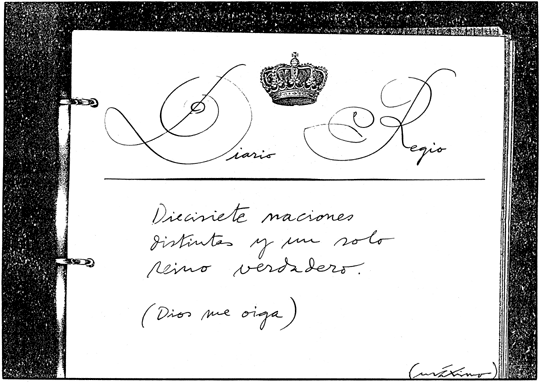 Diario Regio
Diecisiete naciones
distintas y un solo
reino verdadero.
(Dios me oiga)
(máximo)